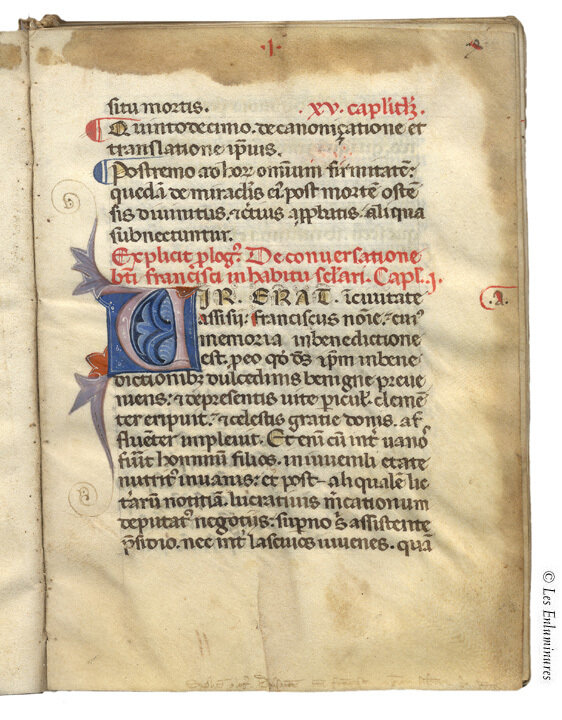 .1.
situ mortis. .xv. caplitlz.
Quintodecimo. de canonizatione et
translatione ipius.
Postremo ad hoꝝ omnium firmitatē:
quedā de miraclis eiꝰ post mortē ostē
sis diuinitus. ⁊ eius applatis. aliqua
subnectuntur.
Explicit plogꝰ. De conuersatione
bti francisci in habitu sclari. Capl. j.
VIR. ERAT. ī ciuitate
assisij. franciscus noīe. ⁊ cuiꝰ
memoria in benedictione
est. p eo qō ds̄ ipm in bene
dictionibꝫ dulcedinis benigne preue
niens: ⁊ de presentis uite pericul. clemē
ter eripuit. ⁊ celestis gratie donis. af
fluēter impleuit. Et enī cū int uanoꝰ
fuīt hominū filios. in iuuenili etate
nutritꝰ in uanis: et post aliqualē lit
terarū notitiā. lucratiuis mcationum
deputatꝰ negotiis: supno s assistente
psidio. nec int lasciuos iuuenes. quā
.a.
© Les Enluminures